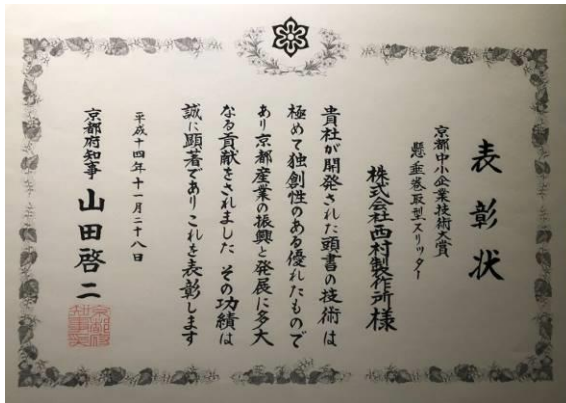 表彰状
京都中小企業技術大賞
懸垂巻取型スリッター
株式会社西村製作所様
貴社が開発された頭書の技術は
極めて独創性のある優れたもので
あり京都産業の振興と発展に多大
なる貢献をされました その功績は
誠に顕著でありこれを表彰します
平成十四年十一月二十八日
京都府知事 山田啓二
京都府
知事之印